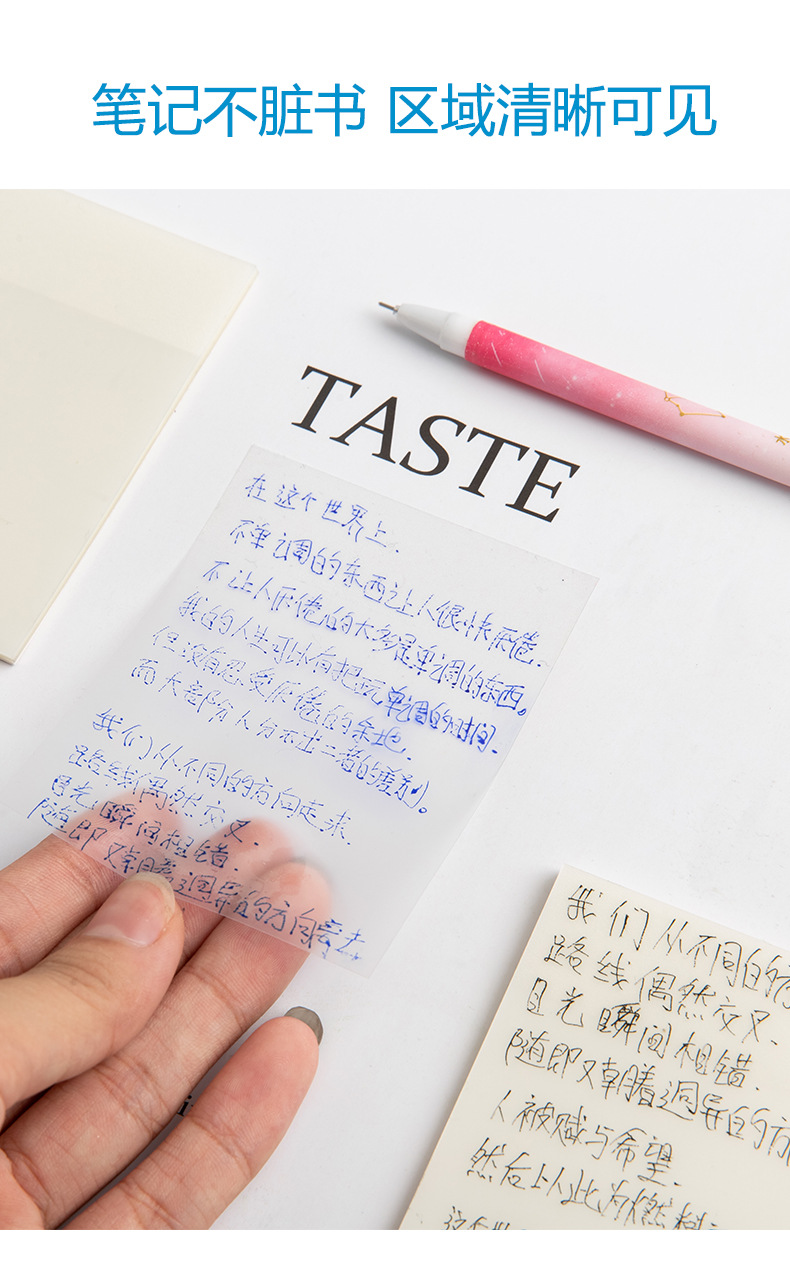 笔记不脏书 区域清晰可见
TASTE
在这个世界上.
不单调的东西让人很快厌倦.
不让人厌倦的大多是单调的东西。
我的人生可以有把玩单调的时间.
但没有忍受厌倦的余地.
而大部分人分不出二者的差别。
我们从不同的方向走来
路线偶然交叉.
目光瞬间相错.
随即又朝着迥异的方向离去
我们从不同的方
路线偶然交叉.
目光瞬间相错.
随即又朝着迥异的方
人被赋与希望.
然后以此为燃料